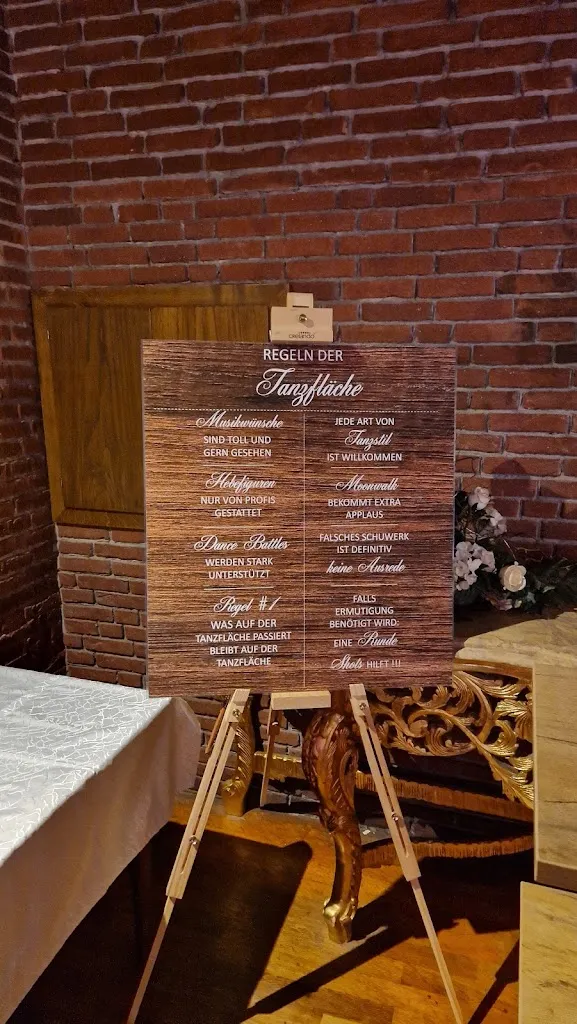 REGELN DER
Tanzfläche
Musikwünsche
SIND TOLL UND
GERN GESEHEN
Hebefiguren
NUR VON PROFIS
GESTATTET
Dance Battles
WERDEN STARK
UNTERSTÜTZT
Regel #1
WAS AUF DER
TANZFLÄCHE PASSIERT
BLEIBT AUF DER
TANZFLÄCHE
JEDE ART VON
Tanzstil
IST WILLKOMMEN
Moonwalk
BEKOMMT EXTRA
APPLAUS
FALSCHES SCHUWERK
IST DEFINITIV
keine Ausrede
FALLS
ERMUTIGUNG
BENÖTIGT WIRD:
EINE Runde
Shots HILFT !!!